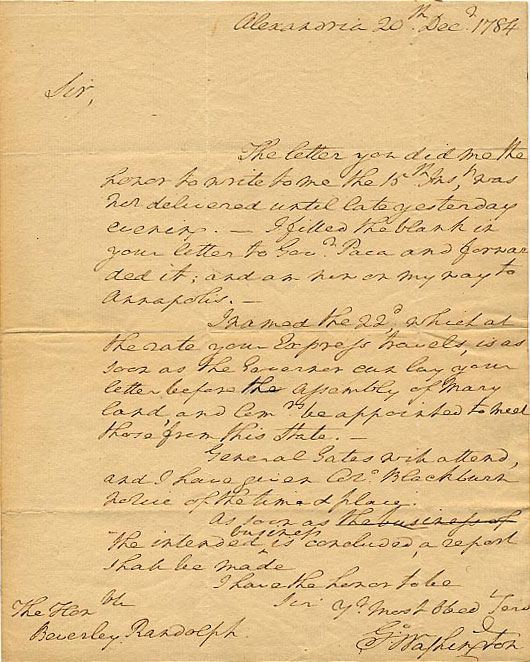 Alexandria 20th Decr. 1784
Sir,
The letter you did me the
honor to write to me the 15th Inst, was
not delivered until late yesterday
evening. — I filled the blank in
your letter to Govr. Paca and forwar
ded it; and am now on my way to
Annapolis. —
I named the 22d, which at
the rate your Express travels, is as
soon as the Governor can lay your
letter before the Assembly of Mary
land, and Comrs. be appointed to meet
those from this State. —
General Gates will attend,
and I have given Colo. Blackburn
notice of the time & place.
As soon as the business of
business
the intended ^ is concluded, a report
shall be made
I have the honor to be
Sir Yr. most obed Serv
The Honble
Beverley Randolph.
Go: Washington